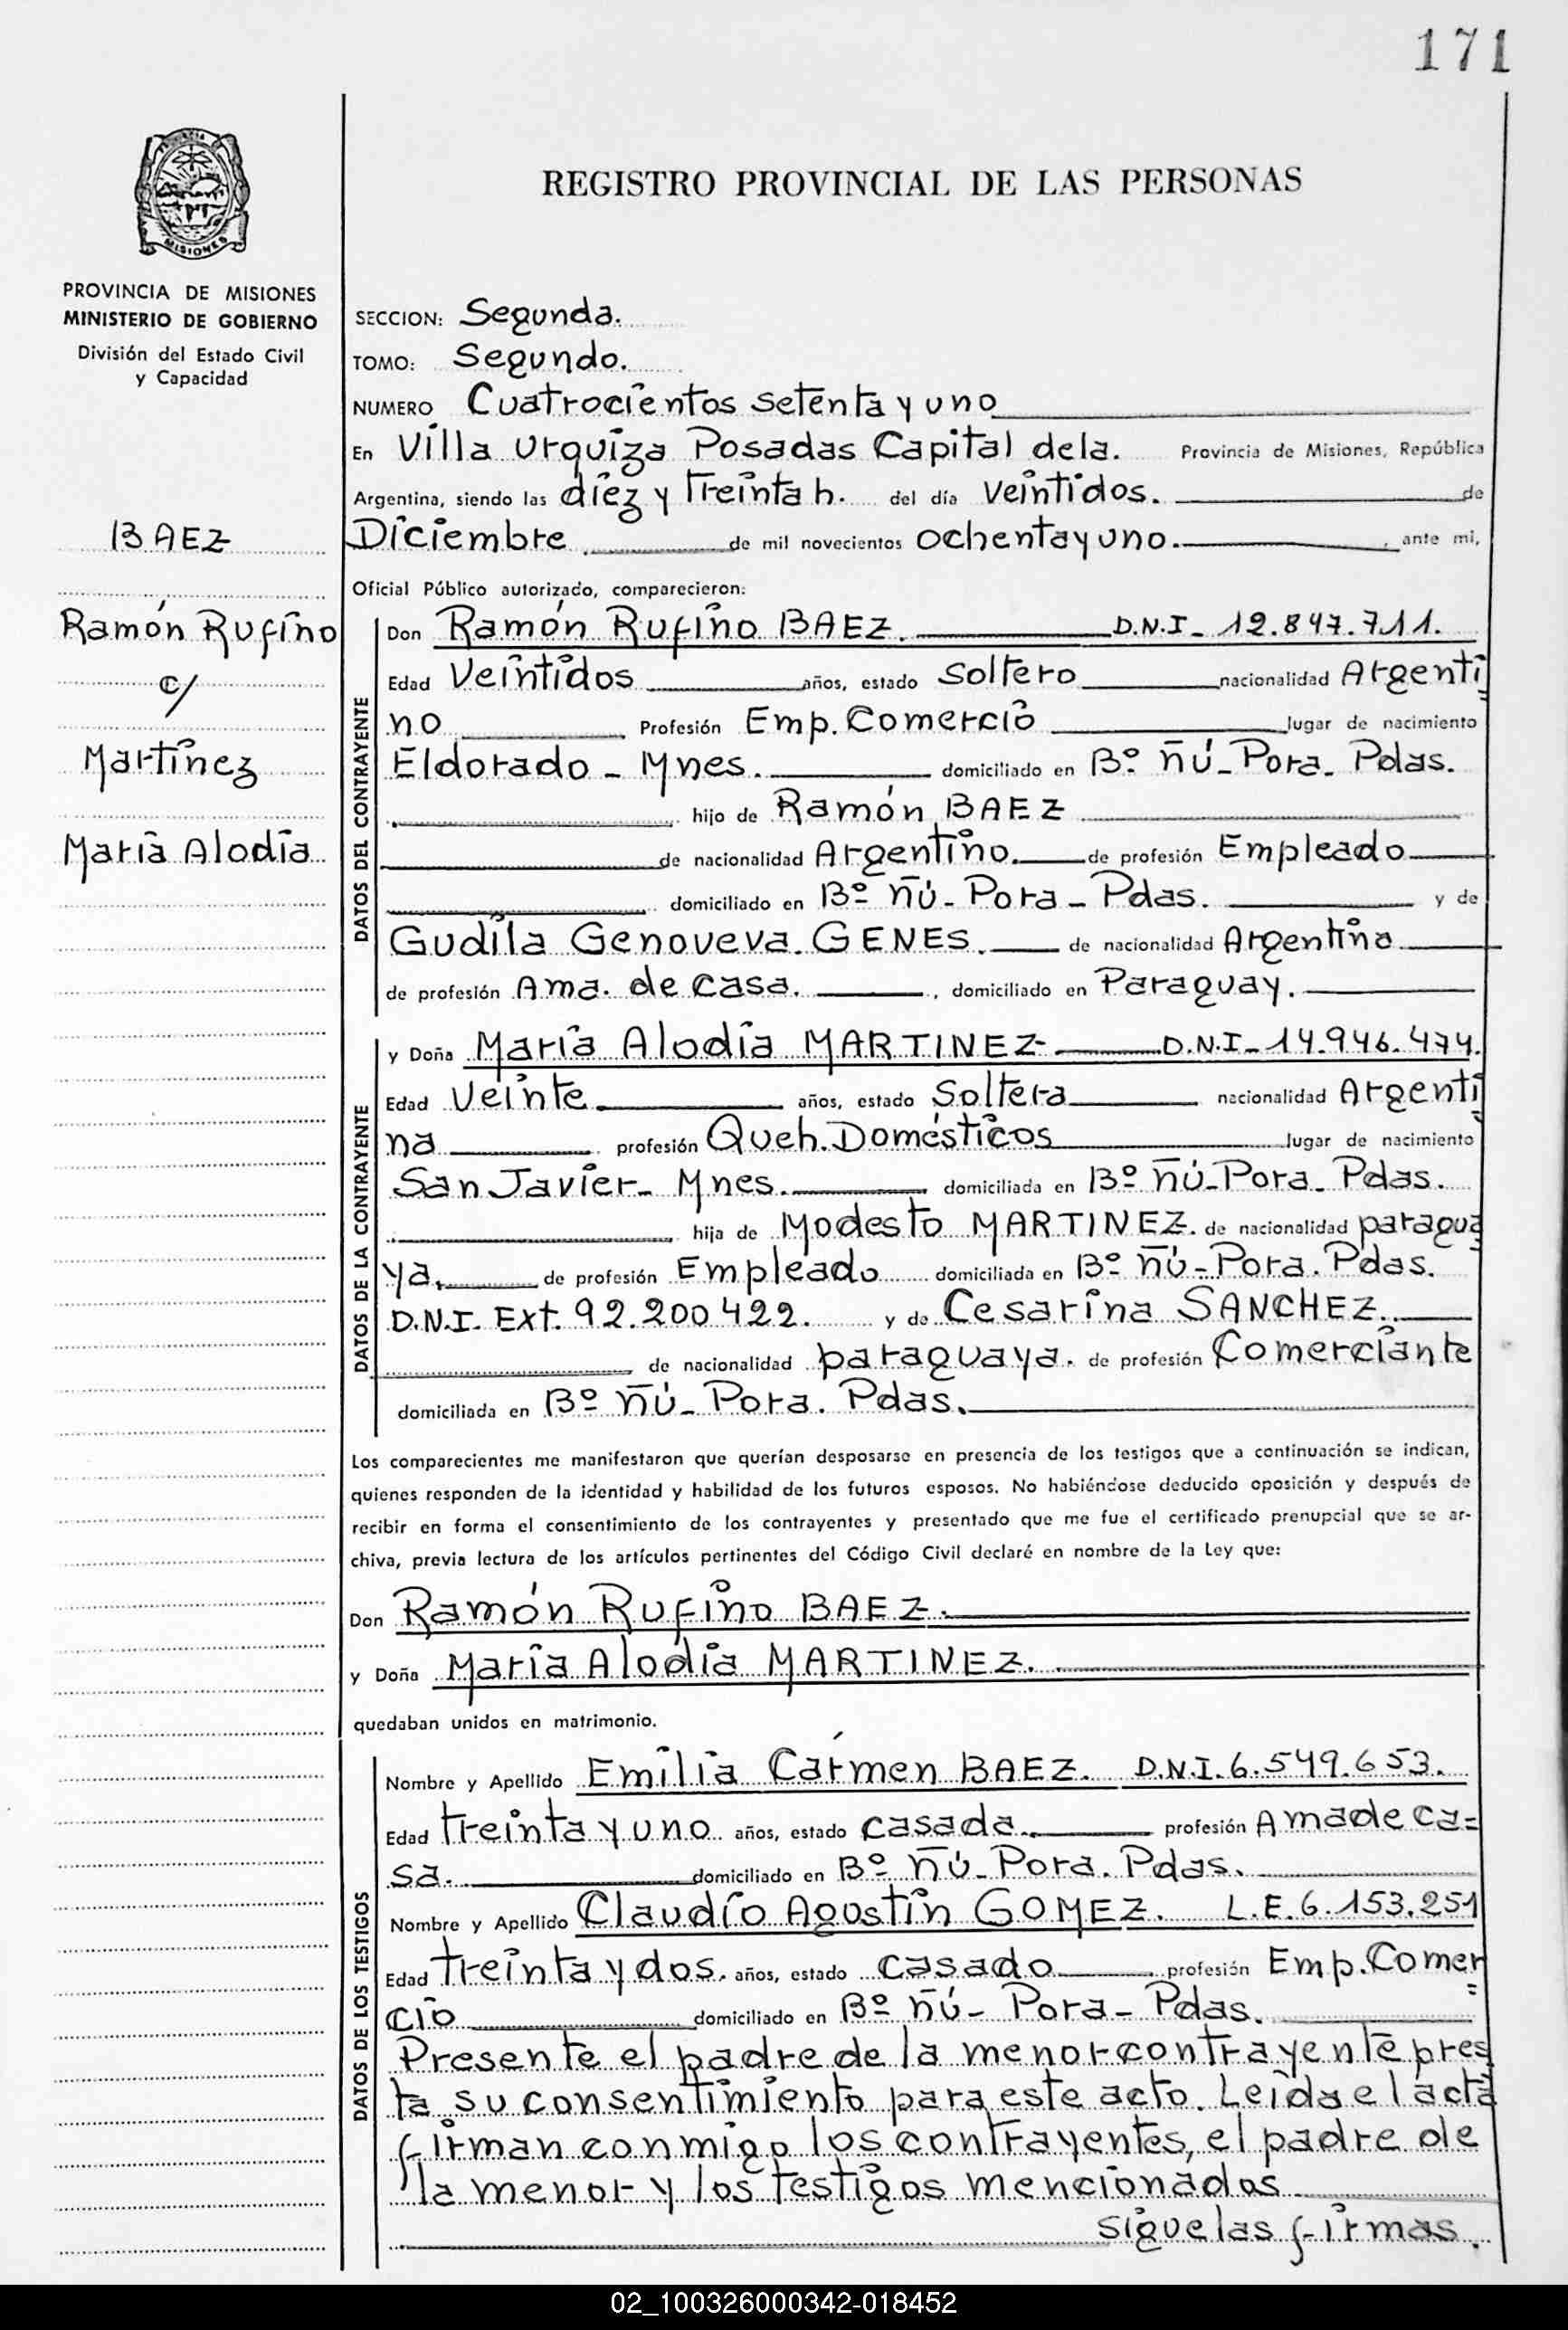 171
PROVINCIA
MISIONES
REGISTRO PROVINCIAL DE LAS PERSONAS
PROVINCIA DE MISIONES
MINISTERIO DE GOBIERNO
División del Estado Civil
y Capacidad
BAEZ
Ramón Rufino
c/
Martínez
María Alodia
SECCION: Segunda.
TOMO: Segundo.
NUMERO Cuatrocientos setenta y uno
En Villa Urquiza Posadas Capital dela. Provincia de Misiones, República
Argentina, siendo las diez y treinta h. del día veintidos. de
Diciembre de mil novecientos ochentayuno. , ante mi,
Oficial Público autorizado, comparecieron:
DATOS DEL CONTRAYENTE
Don Ramón Rufino BAEZ. D.N.I_ 12.847.711.
Edad Veintidos años, estado Soltero nacionalidad Argenti
no Profesión Emp. Comercio lugar de nacimiento
Eldorado - Mnes. domiciliado en Bº ñú_Pora_ Pdas.
hijo de Ramón BAEZ
de nacionalidad Argentino. de profesión Empleado
domiciliado en Bº ñú_ Pora_ Pdas. y de
Gudila Genoveva GENES. de nacionalidad Argentina
de profesión Ama. de casa. , domiciliado en Paraguay.
DATOS DE LA CONTRAYENTE
y Doña María Alodia MARTINEZ D.N.I_14.946.474.
Edad Veinte. años, estado Soltera nacionalidad Argenti
na profesión Queh. Domésticos lugar de nacimiento
San Javier_ Mnes. domiciliada en Bº ñú_Pora_ Pdas.
hija de Modesto MARTINEZ. de nacionalidad paragua
ya. de profesión Empleado domiciliada en Bº ñú_Pora. Pdas.
D.N.I. Ext. 92.200422. y de Cesarina SANCHEZ.
de nacionalidad paraguaya. de profesión Comerciante
domiciliada en Bº ñú_ Pora. Pdas.
Los comparecientes me manifestaron que querían desposarse en presencia de los testigos que a continuación se indican,
quienes responden de la identidad y habilidad de los futuros esposos. No habiéndose deducido oposición y después de
recibir en forma el consentimiento de los contrayentes y presentado que me fue el certificado prenupcial que se ar-
chiva, previa lectura de los artículos pertinentes del Código Civil declaré en nombre de la Ley que:
Don Ramón Rufino BAEZ.
y Doña María Alodia MARTINEZ.
quedaban unidos en matrimonio.
DATOS DE LOS TESTIGOS
Nombre y Apellido Emilia Cármen BAEZ. D.N.I.6.549.653.
Edad treinta y uno años, estado casada. profesión Amade ca=
sa. domiciliado en Bº ñú_Pora. Pdas.
Nombre y Apellido Claudio Agustín GOMEZ. L.E.6.153.251
Edad treinta y dos. años, estado casado profesión Emp. Comer=
cio domiciliado en Bº ñú_ Pora_ Pdas.
Presente el padre de la menor contrayente pres
ta su consentimiento para este acto. Leída el acta
firman conmigo los contrayentes, el padre de
la menor y los testigos mencionados
siguelas firmas.
02_100326000342-018452